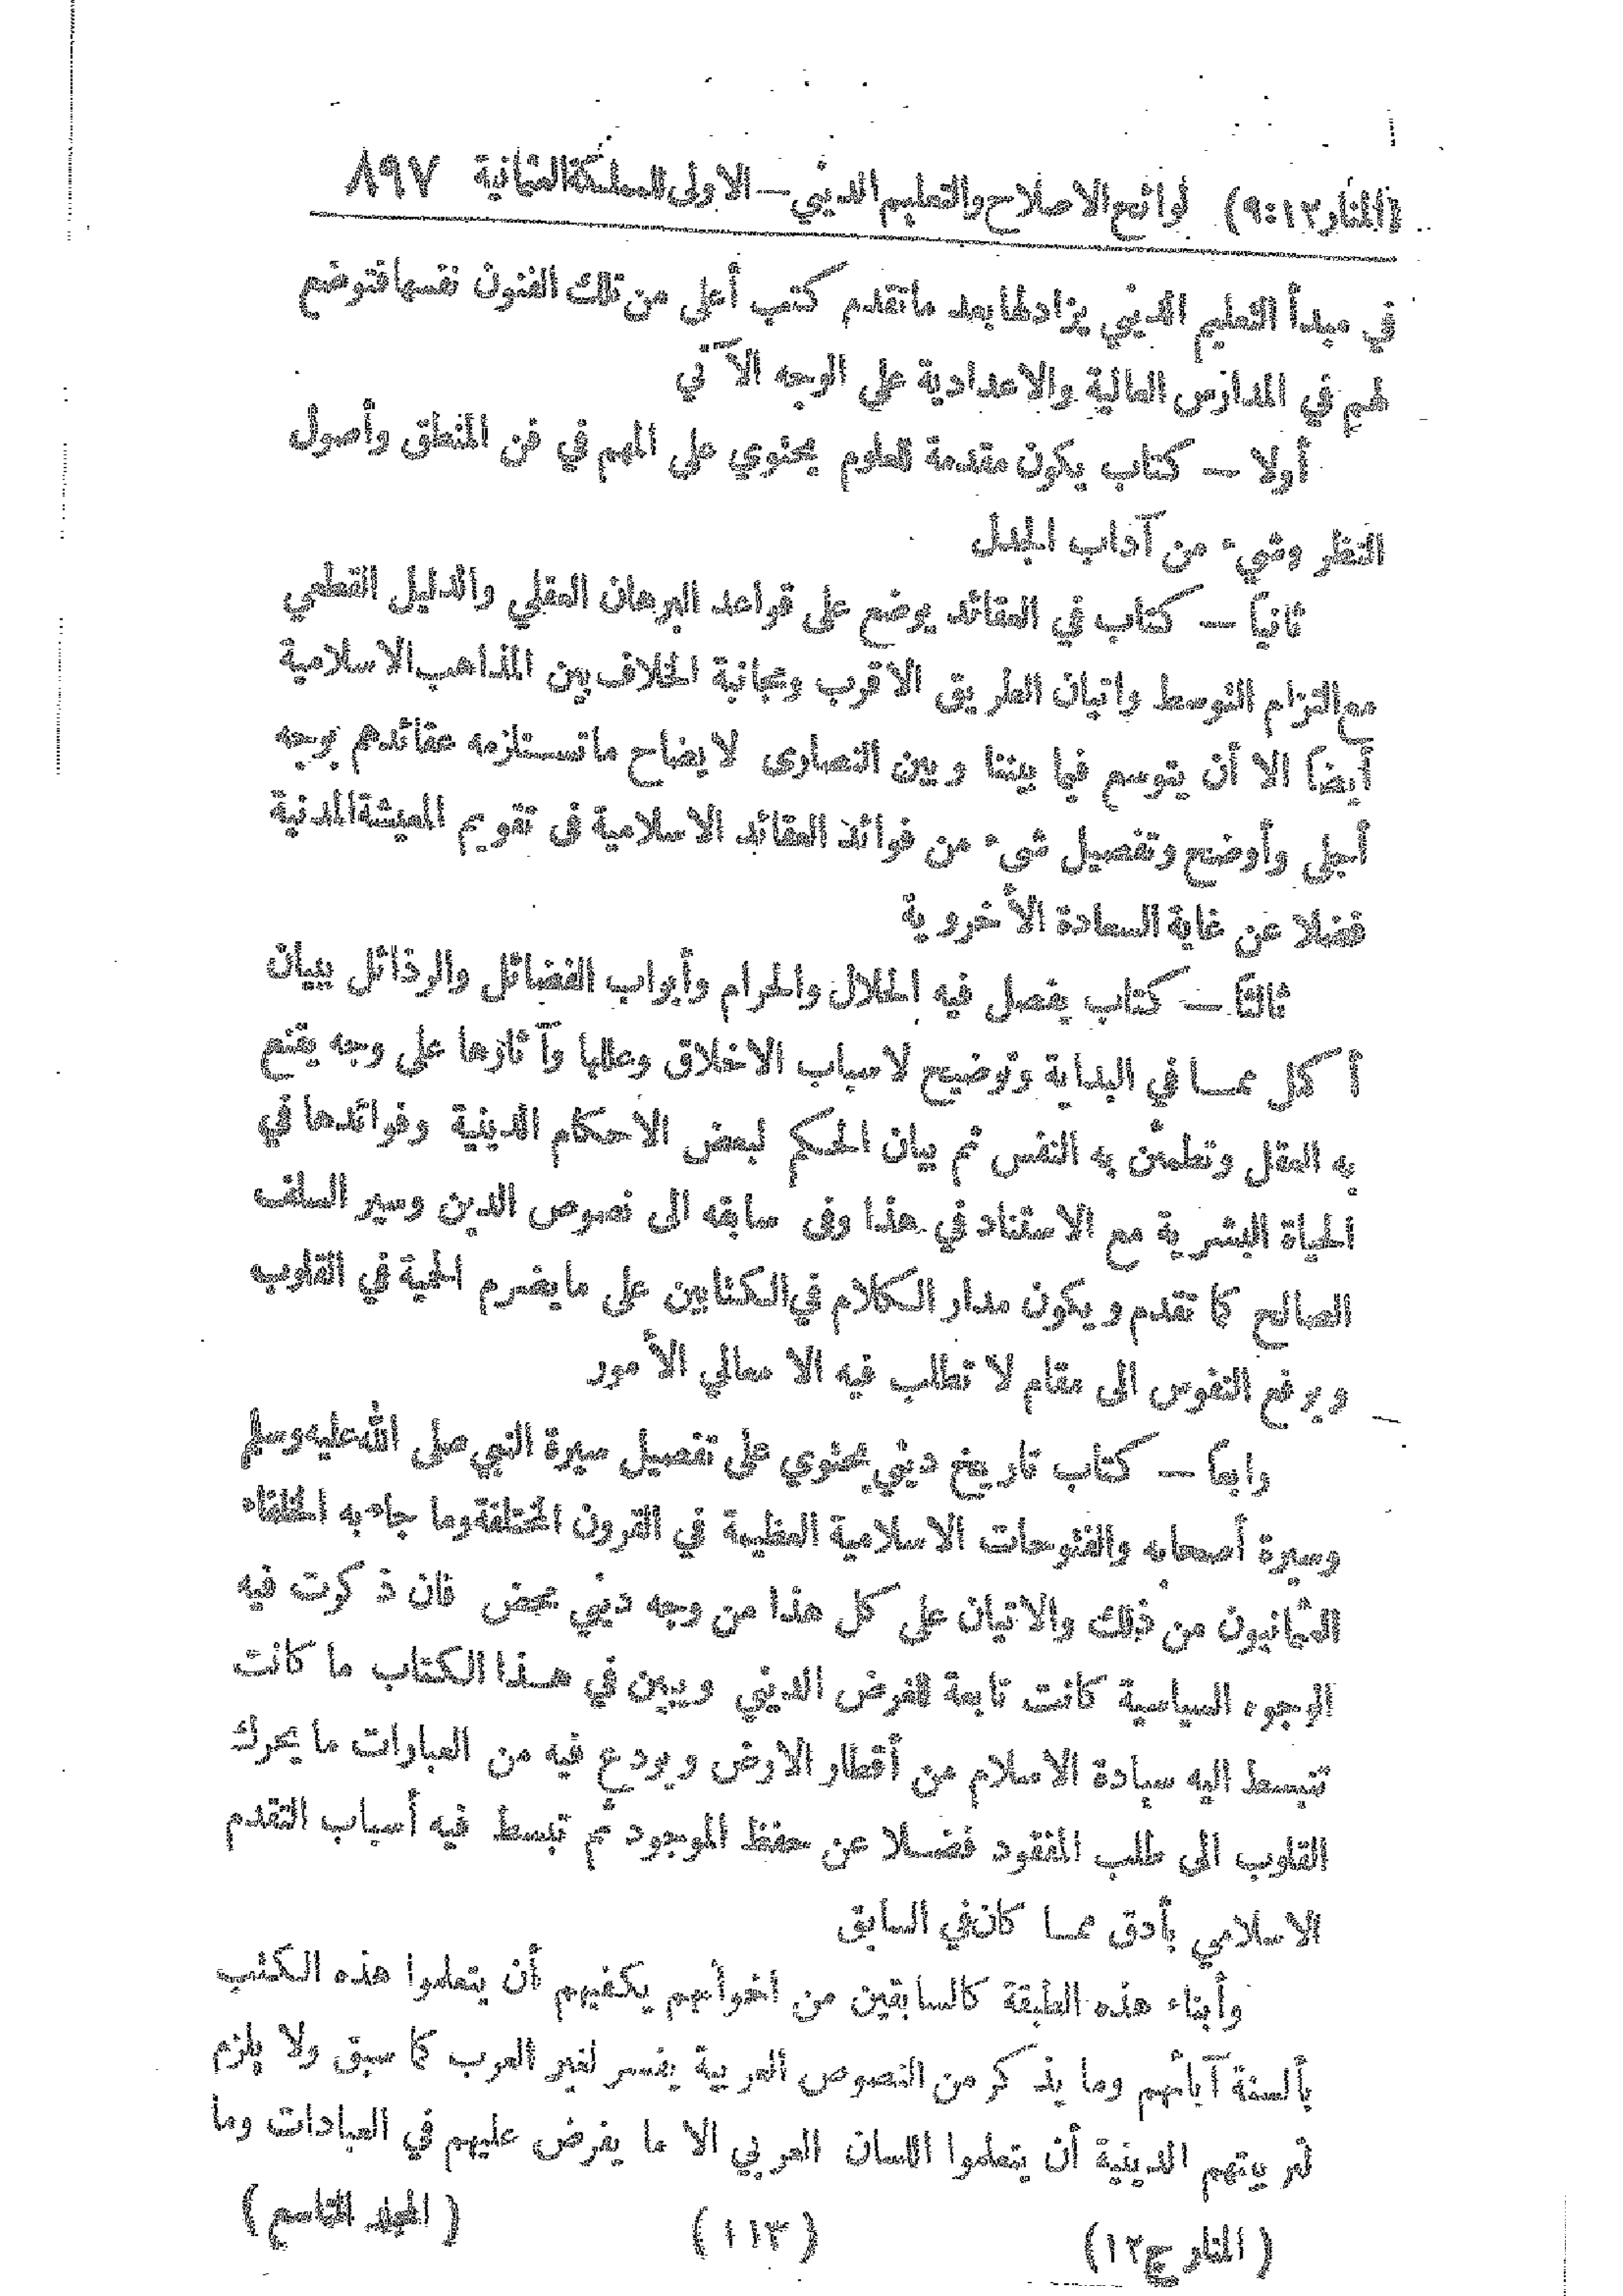 (المنار ١٢:٩) لوائح الاصلاح والتعليم الديني — الاولى للمملكة العثمانية ٨٩٧
في مبدأ التعليم الديني يزاد لها بعد ما تقدم كتب أعلى من تلك الفنون نفسها فتوضع
لهم في المدارس العالية والاعدادية على الوجه الآتي
أولا — كتاب يكون مقدمة للعلوم يحتوي على المهم في فن المنطق وأصول
النظر وشيء من آداب الجدل
ثانياً — كتاب في العقائد يوضع على قواعد البرهان العقلي والدليل القطعي
مع التزام التوسط واتيان الطريق الاقرب ومجانبة الخلاف بين المذاهب الاسلامية
أيضاً الا أن يتوسع فيما بيننا وبين النصارى لايضاح ما تستلزمه عقائدهم بوجه
أجلى وأوضح وتفصيل شيء من فوائد العقائد الاسلامية في تقويم المعيشة المدنية
فضلا عن غاية السعادة الأخروية
ثالثاً — كتاب يفصل فيه الحلال والحرام وأبواب الفضائل والرذائل ببيان
أكمل مما في البداية وتوضيح لاسباب الاخلاق وعللها وآثارها على وجه يقتنع
به العقل وتطمئن به النفس ثم بيان الحكم لبعض الاحكام الدينية وفوائدها في
الحياة البشرية مع الاستناد في هذا وفي سابقه الى نصوص الدين وسير السلف
الصالح كما تقدم ويكون مدار الكلام في الكتابين على ما يضرم الحمية في القلوب
ويرفع النفوس الى مقام لا تطلب فيه الا معالي الأمور
رابعاً — كتاب تاريخ ديني يحتوي على تفصيل سيرة النبي صلى الله عليه وسلم
وسيرة أصحابه والفتوحات الاسلامية العظيمة في القرون المختلفة وما جاء به الخلفاء
العثمانيون من ذلك والاتيان على كل هذا من وجه ديني محض فان ذكرت فيه
الوجوه السياسية كانت تابعة للغرض الديني ويبين في هذا الكتاب ما كانت
تنبسط اليه سيادة الاسلام من أقطار الارض ويودع فيه من العبارات ما يحرك
القلوب الى طلب المفقود فضلا عن حفظ الموجود ثم تبسط فيه أسباب التقدم
الاسلامي بأدق مما كان في السابق
وأبناء هذه الطبقة كالسابقين من اخوانهم يكفيهم أن يتعلموا هذه الكتب
بألسنة آبائهم وما يذكر من النصوص العربية يفسر لغير العرب كما سبق ولا يلزم
لتربيتهم الدينية أن يتعلموا اللسان العربي الا ما يفرض عليهم في العبادات وما
(المنار ج ١٢) (١١٣) (المجلد التاسع)